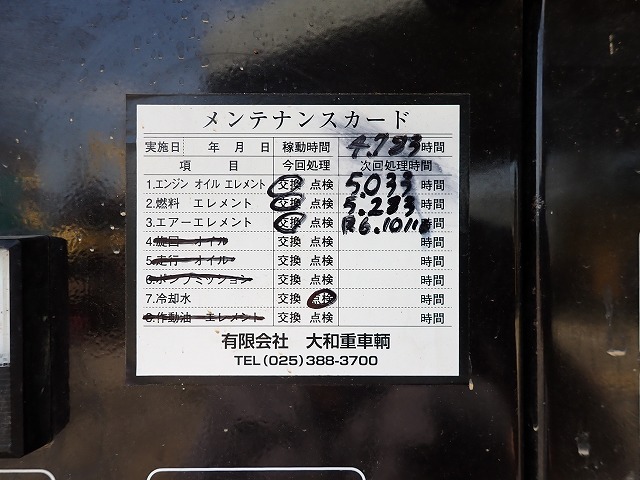 メンテナンスカード
実施日 年 月 日 稼動時間 4.783 時間
項 目 今回処理 次回処理時間
1.エンジン オイル エレメント 交換 点検 5.033 時間
2.燃料 エレメント 交換 点検 5.283 時間
3.エアーエレメント 交換 点検 R6.10/1 時間
4.旋回 オイル 交換 点検 時間
5.走行 オイル 交換 点検 時間
6.ポンプミッション 交換 点検 時間
7.冷却水 交換 点検 時間
8.作動油 エレメント 交換 点検 時間
有限会社 大和重車輌
TEL(025)388-3700